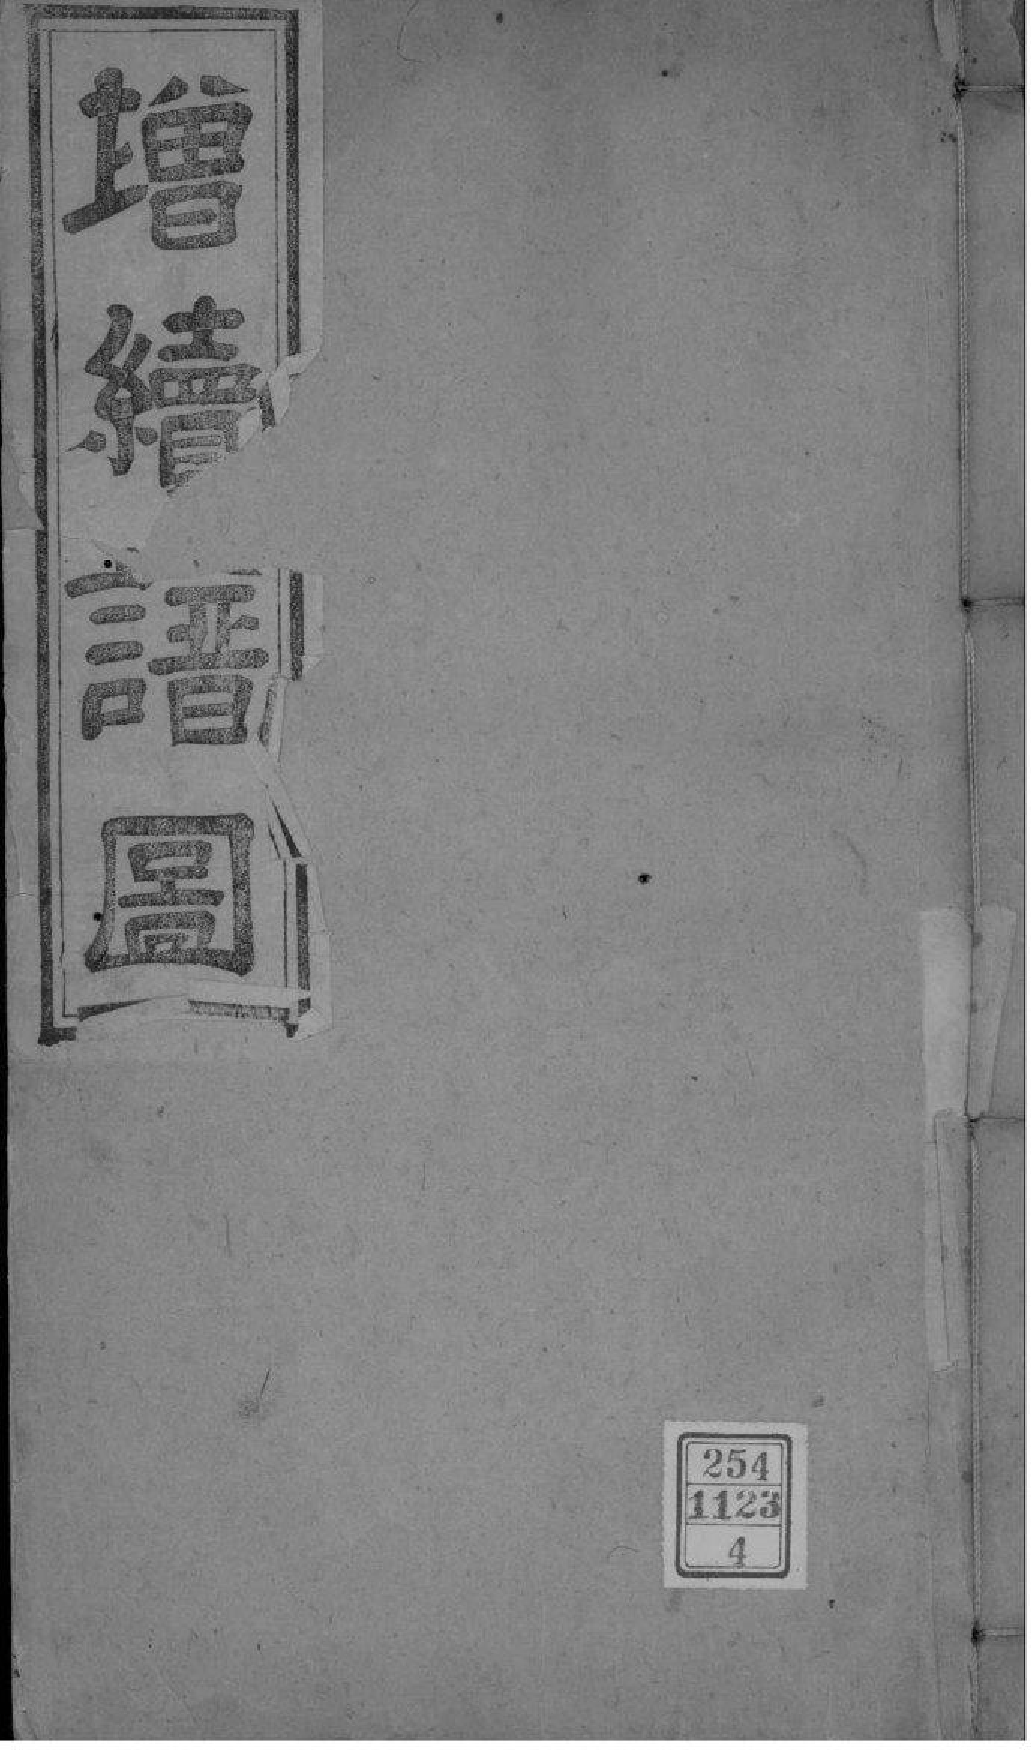 增續譜圖
254
1123
4